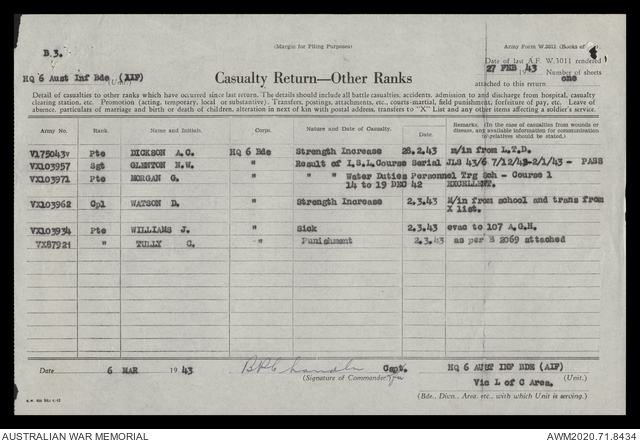 B.3.
(Margin for Filing Purposes)
Army Form W.3011 (Books of
HQ 6 Aust Inf Bde (AIF)
(Unit)
Casualty Return—Other Ranks
Date of last A.F. W.3011 rendered
27 FEB 1943 Number of sheets
attached to this return one
Detail of casualties to other ranks which have occurred since last return. The details should include all battle casualties, accidents, admission to and discharge from hospital, casualty
clearing station, etc. Promotion (acting, temporary, local or substantive). Transfers, postings, attachments, etc., courts-martial, field punishment, forfeiture of pay, etc. Leave of
absence, particulars of marriage and birth or death of children, alteration in next of kin with postal address, transfers to "X" List and any other items affecting a soldier's service.
Army No. Rank. Name and Initials. Corps. Nature and Date of Casualty. Date. Remarks. (In the case of casualties from wounds or disease, any available information for communication to relatives should be stated.)
V175043v Pte DICKSON A.C. HQ 6 Bde Strength Increase 28.2.43 m/in from L.T.D.
VX103957 Sgt GLENTON N.W. " Result of I.S.L.Course Serial JLS 43/6 7/12/42-2/1/43 - PASS
VX103971 Pte MORGAN G. " " " Water Duties Personnel Trg Sch - Course 1
14 to 19 DEC 42 EXCELLENT.
VX103962 Cpl WATSON D. " Strength Increase 2.3.43 M/in from school and trans from
X list.
VX103934 Pte WILLIAMS J. " Sick 2.3.43 evac to 107 A.G.H.
VX87921 " TULLY C. " Punishment 2.3.43 as per B 2069 attached
Date 6 MAR 1943 Capt. HQ 6 AUST INF BDE (AIF)
(Signature of Commander) (Unit.)
Vic L of C Area.
(Bde., Divn., Area, etc., with which Unit is serving.)
AUSTRALIAN WAR MEMORIAL AWM2020.71.8434